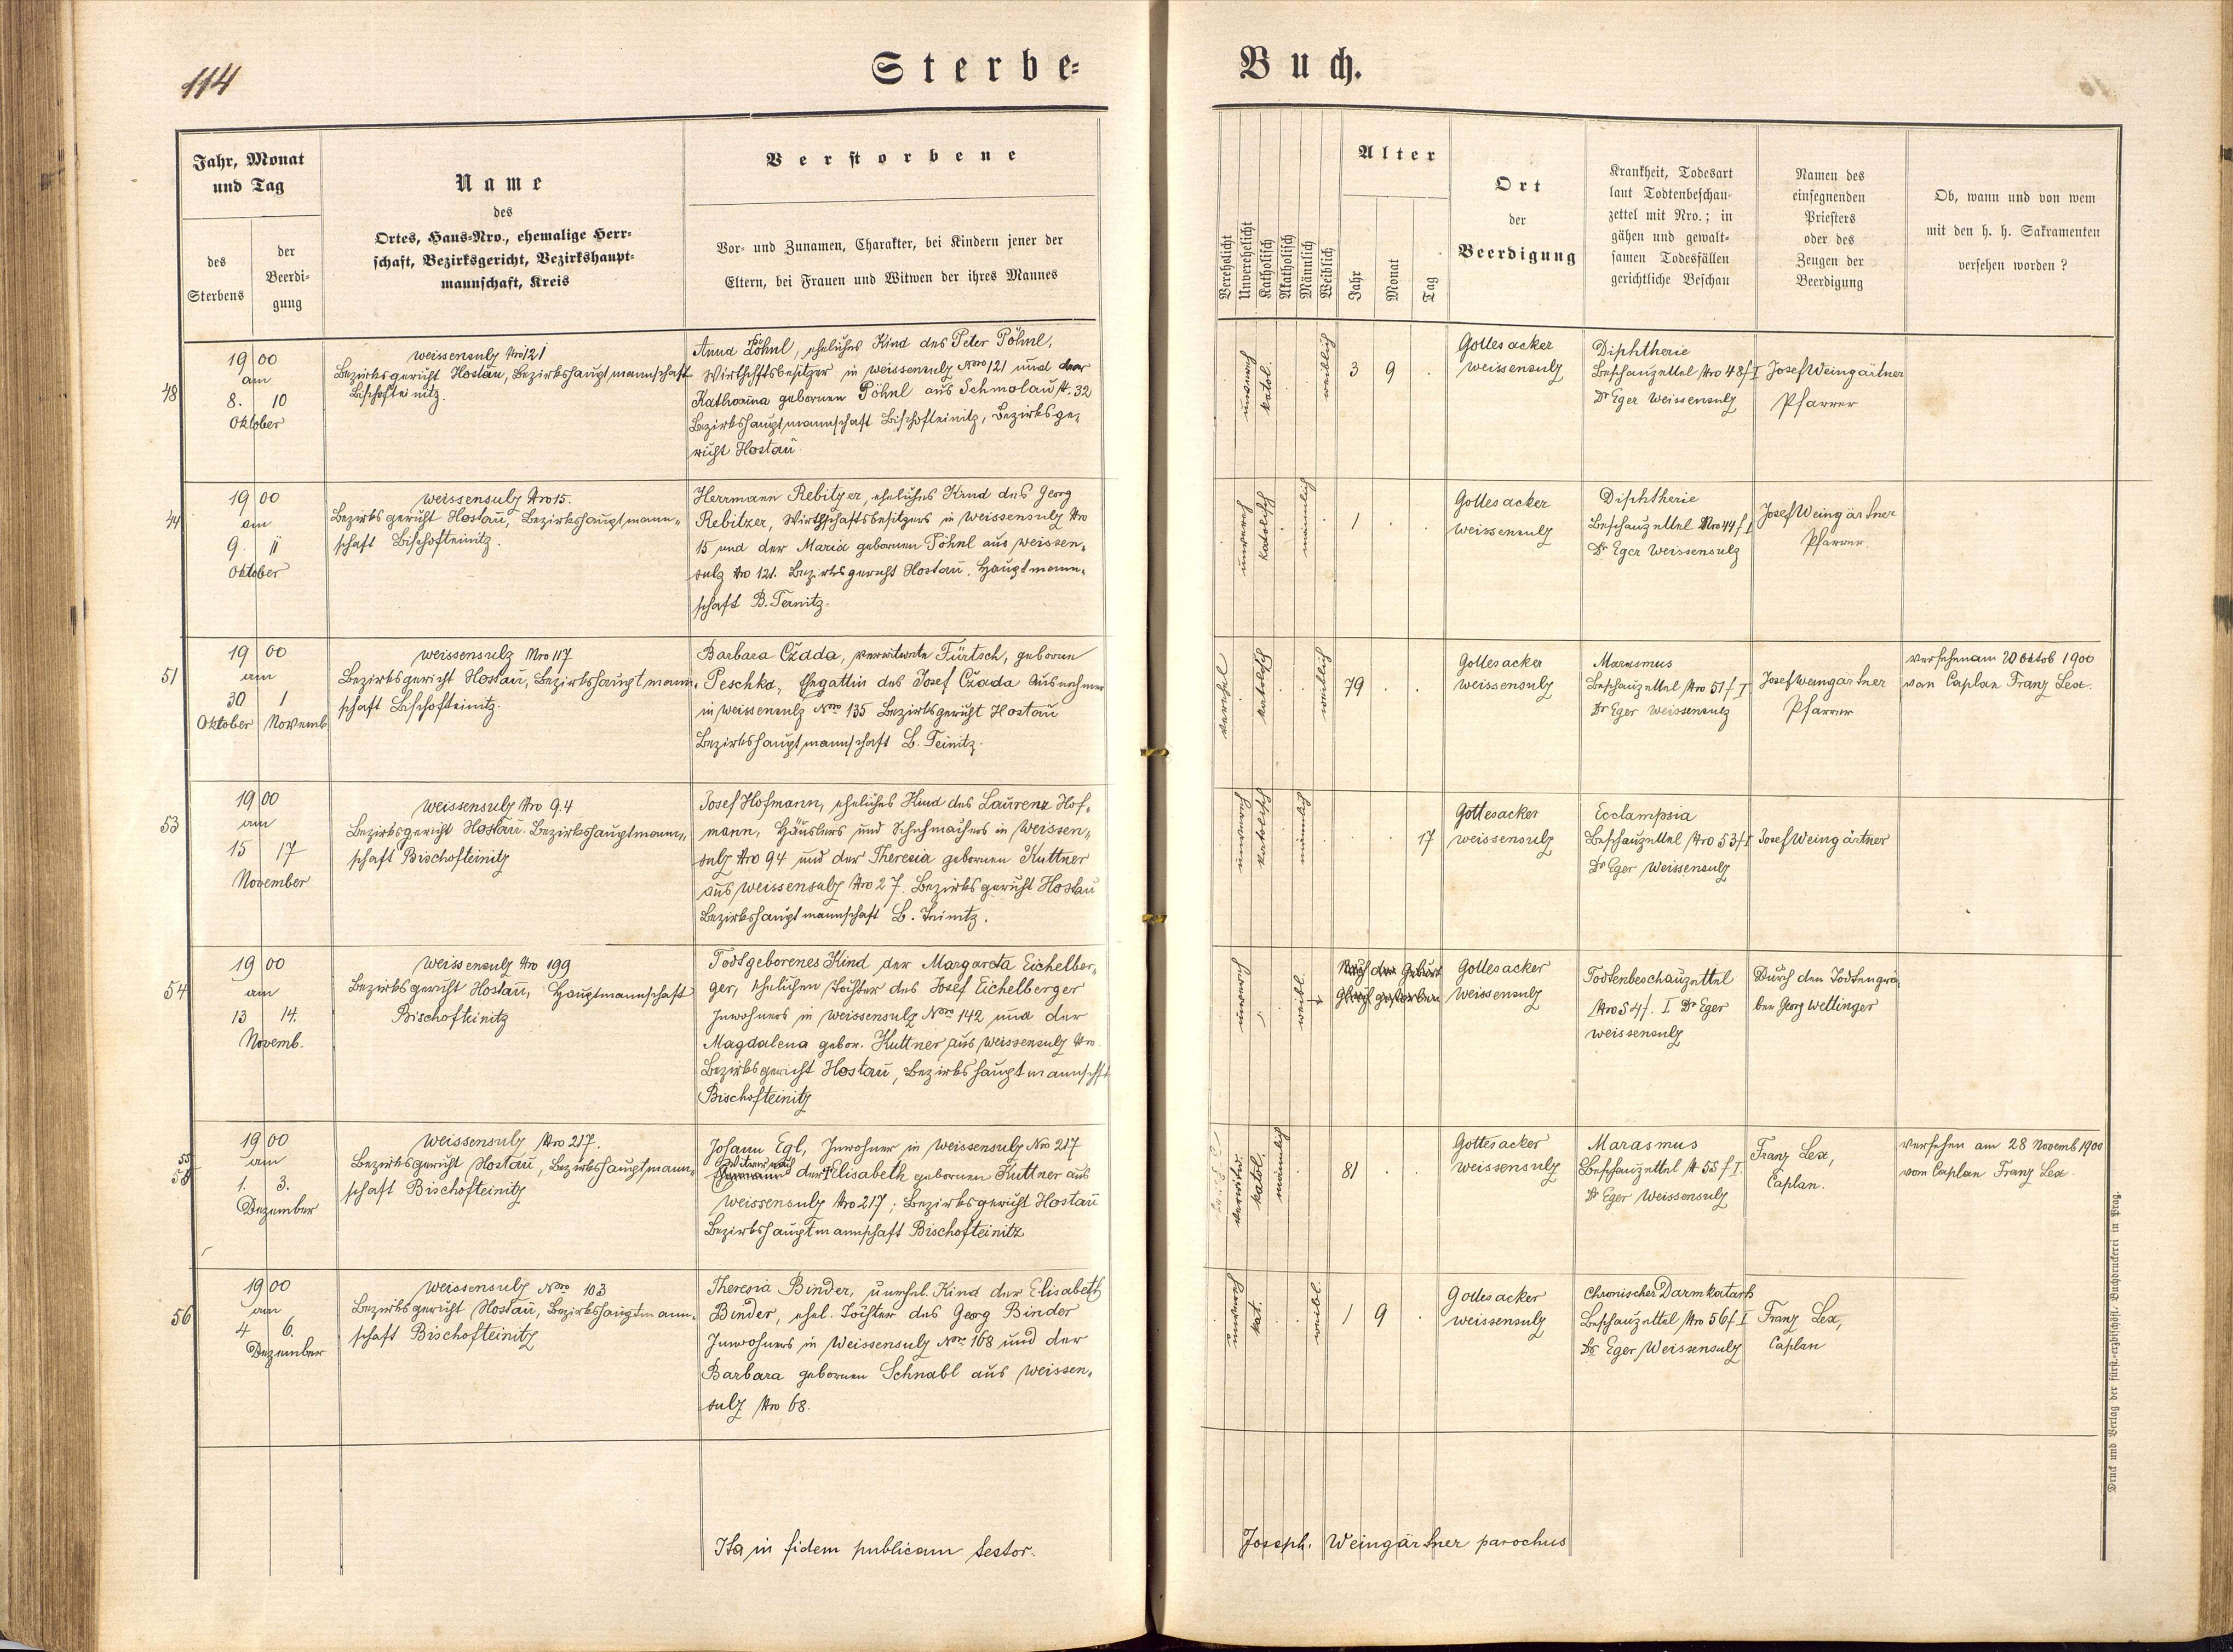 114
Sterbe-
Buch.
Jahr, Monat
und Tag
des
Sterbens
der
Beerdi-
gung
Name
des
Ortes, Haus-Nro., ehemalige Herr-
schaft, Bezirksgericht, Bezirkshaupt-
mannschaft, Kreis
Verstorbene
Vor- und Zunamen, Charakter, bei Kindern jener der
Eltern, bei Frauen und Witwen der ihres Mannes
Verehelicht
Unverehelicht
Katholisch
Akatholisch
Männlich
Weiblich
Alter
Jahr
Monat
Tag
Ort
der
Beerdigung
Krankheit, Todesart
laut Todtenbeschau-
zettel mit Nro.; in
gähen und gewalt-
samen Todesfällen
gerichtliche Beschau
Namen des
einsegnenden
Priesters
oder des
Zeugen der
Beerdigung
Ob, wann und von wem
mit den h. h. Sakramenten
versehen worden?
48
1900
am
8. 10
Oktober
Weissensulz Nro 121
Bezirksgericht Hostau, Bezirkshauptmannschaft
Bischofteinitz.
Anna Pöhnl, eheliches Kind des Peter Pöhnl,
Wirthschftsbesitzer in Weissensulz Nro 121 und der
Katharina gebornen Pöhnl aus Schmolau N. 32
Bezirkshauptmannschaft Bischofteinitz, Bezirksge-
richt Hostau.
unverh
katol.
weiblich
3 9 .
Gottesacker
Weissensulz
Diphtherie
Beschauzettel Nro 48/I
Dr Eger Weissensulz
Josef Weingärtner
Pfarrer
44
1900
am
9. 11
Oktober
Weissensulz Nro 15.
Bezirksgericht Hostau, Bezirkshauptmann-
schaft Bischofteinitz.
Herrmann Rebitzer, eheliches Kind des Georg
Rebitzer, Wirthschaftsbesitzers in Weissensulz Nro
15 und der Maria gebornen Pöhnl aus Weissen-
sulz Nro 121. Bezirksgericht Hostau, Hauptmann-
schaft B. Teinitz.
unvereh
katolisch
männlich
1 . .
Gottesacker
Weissensulz
Diphtherie
Beschauzettel Nro 44/I
Dr Eger Weissensulz
Josef Weingärtner
Pfarrer.
51
1900
am
30 1
Oktober Novemb.
Weissensulz Nro 117
Bezirksgericht Hostau, Bezirkshauptmann-
schaft Bischofteinitz.
Barbara Cžada, verwitwete Fürtsch, geborne
Peschka, Ehegattin des Josef Cžada Ausnehmer
in Weissensulz Nro 135 Bezirksgericht Hostau
Bezirkshauptmannschaft B. Teinitz.
verehel
katolisch
weiblich
79 . .
Gottesacker
Weissensulz
Marasmus
Beschauzettel Nro 51/I
Dr Eger Weissensulz
Josef Weingärtner
Pfarrer
versehen am 20 Oktob 1900
von Caplan Franz Lex.
53
1900
am
15 17
November
Weissensulz Nro 94
Bezirksgericht Hostau. Bezirkshauptmann-
schaft Bischofteinitz
Josef Hofmann, eheliches Kind des Laurenz Hof-
mann, Häuslers und Schuhmachers in Weissen-
sulz Nro 94 und der Theresia gebornen Kuttner
aus Weissensulz Nro 27. Bezirksgericht Hostau
Bezirkshauptmannschaft B. Teinitz.
unvereh
katolisch
männlich
. . 17
Gottesacker
Weissensulz
Ecclampsia
Beschauzettel Nro 53/I
Dr Eger Weissensulz
Josef Weingärtner
54
1900
am
13 14.
Novemb.
Weissensulz Nro 199
Bezirksgericht Hostau, Hauptmannschaft
Bischofteinitz
Todtgeborenes Kind der Margareta Eichelber-
ger, ehelichen Tochter des Josef Eichelberger
Inwohners in Weissensulz Nro 142 und der
Magdalena gebor. Kuttner aus Weissensulz Nro
Bezirksgericht Hostau, Bezirkshauptmannschft
Bischofteinitz
unvereh
weibl.
Nach der Geburt
gleich gestorben
Gottesacker
Weissensulz
Todtenbeschauzettel
Nro 54/. I Dr Eger
Weissensulz
Durch den Todtengrä-
ber Georg Wettinger
55
1900
am
1. 3.
Dezember
Weissensulz Nro 217.
Bezirksgericht Hostau, Bezirkshauptmann-
schaft Bischofteinitz
Johann Egl, Inwohner in Weissensulz Nro 217
Witwer nach
der Elisabeth gebornen Kuttner aus
Weissensulz Nro 217; Bezirksgericht Hostau
Bezirkshauptmannschaft Bischofteinitz
verwitw.
katol.
männlich
81 . .
Gottesacker
Weissensulz
Marasmus
Beschauzettel N 55/I.
Dr Eger Weissensulz
Franz Lex,
Caplan.
versehen am 28 Novemb 1900
vom Caplan Franz Lex.
56
1900
am
4 6.
Dezember
Weissensulz Nro 103
Bezirksgericht Hostau, Bezirkshauptmann-
schaft Bischofteinitz
Theresia Binder, unehel. Kind der Elisabeth
Binder, ehel. Tochter des Georg Binder
Inwohners in Weissensulz Nro 168 und der
Barbara gebornen Schnabl aus Weissen-
sulz Nro 68.
unvereh
kat.
weibl.
1 9 .
Gottesacker
Weissensulz
Chronischer Darmkatarh
Beschauzettel Nro 56/I
Dr Eger Weissensulz
Franz Lex,
Caplan
Ita in fidem publicam testor.
Joseph. Weingärtner parochus
Druck und Verlag der fürst.-erzbischöfl. Buchdruckerei in Prag.